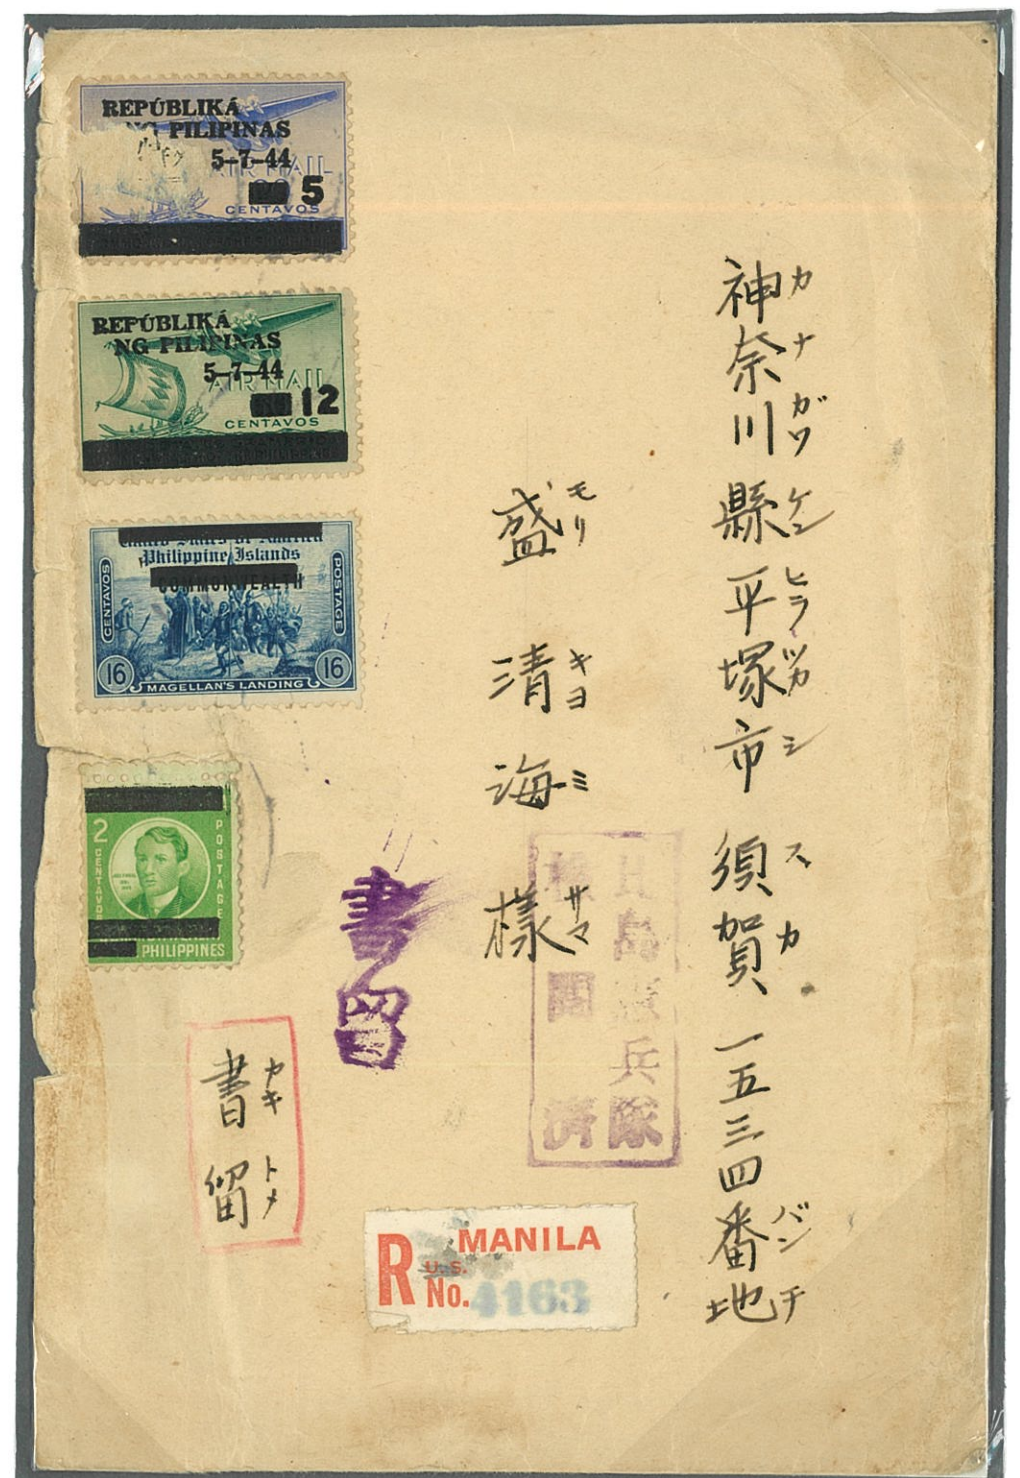 REPÚBLIKÁ
NG PILIPINAS
5-7-44
AIR MAIL
5
CENTAVOS
REPÚBLIKÁ
NG PILIPINAS
5-7-44
AIR MAIL
12
CENTAVOS
United States of America
Philippine Islands
COMMONWEALTH
CENTAVOS
POSTAGE
16
16
MAGELLAN'S LANDING
2
CENTAVOS
POSTAGE
PHILIPPINES
神奈川縣平塚市 須賀一五三四番地
カナガワケンヒラツカシ スカ バンチ
盛 清海 様
モリ キヨミ サマ
比島憲兵隊
検閲済
書留
書留
カキトメ
R
MANILA
U.S.
No. 4163